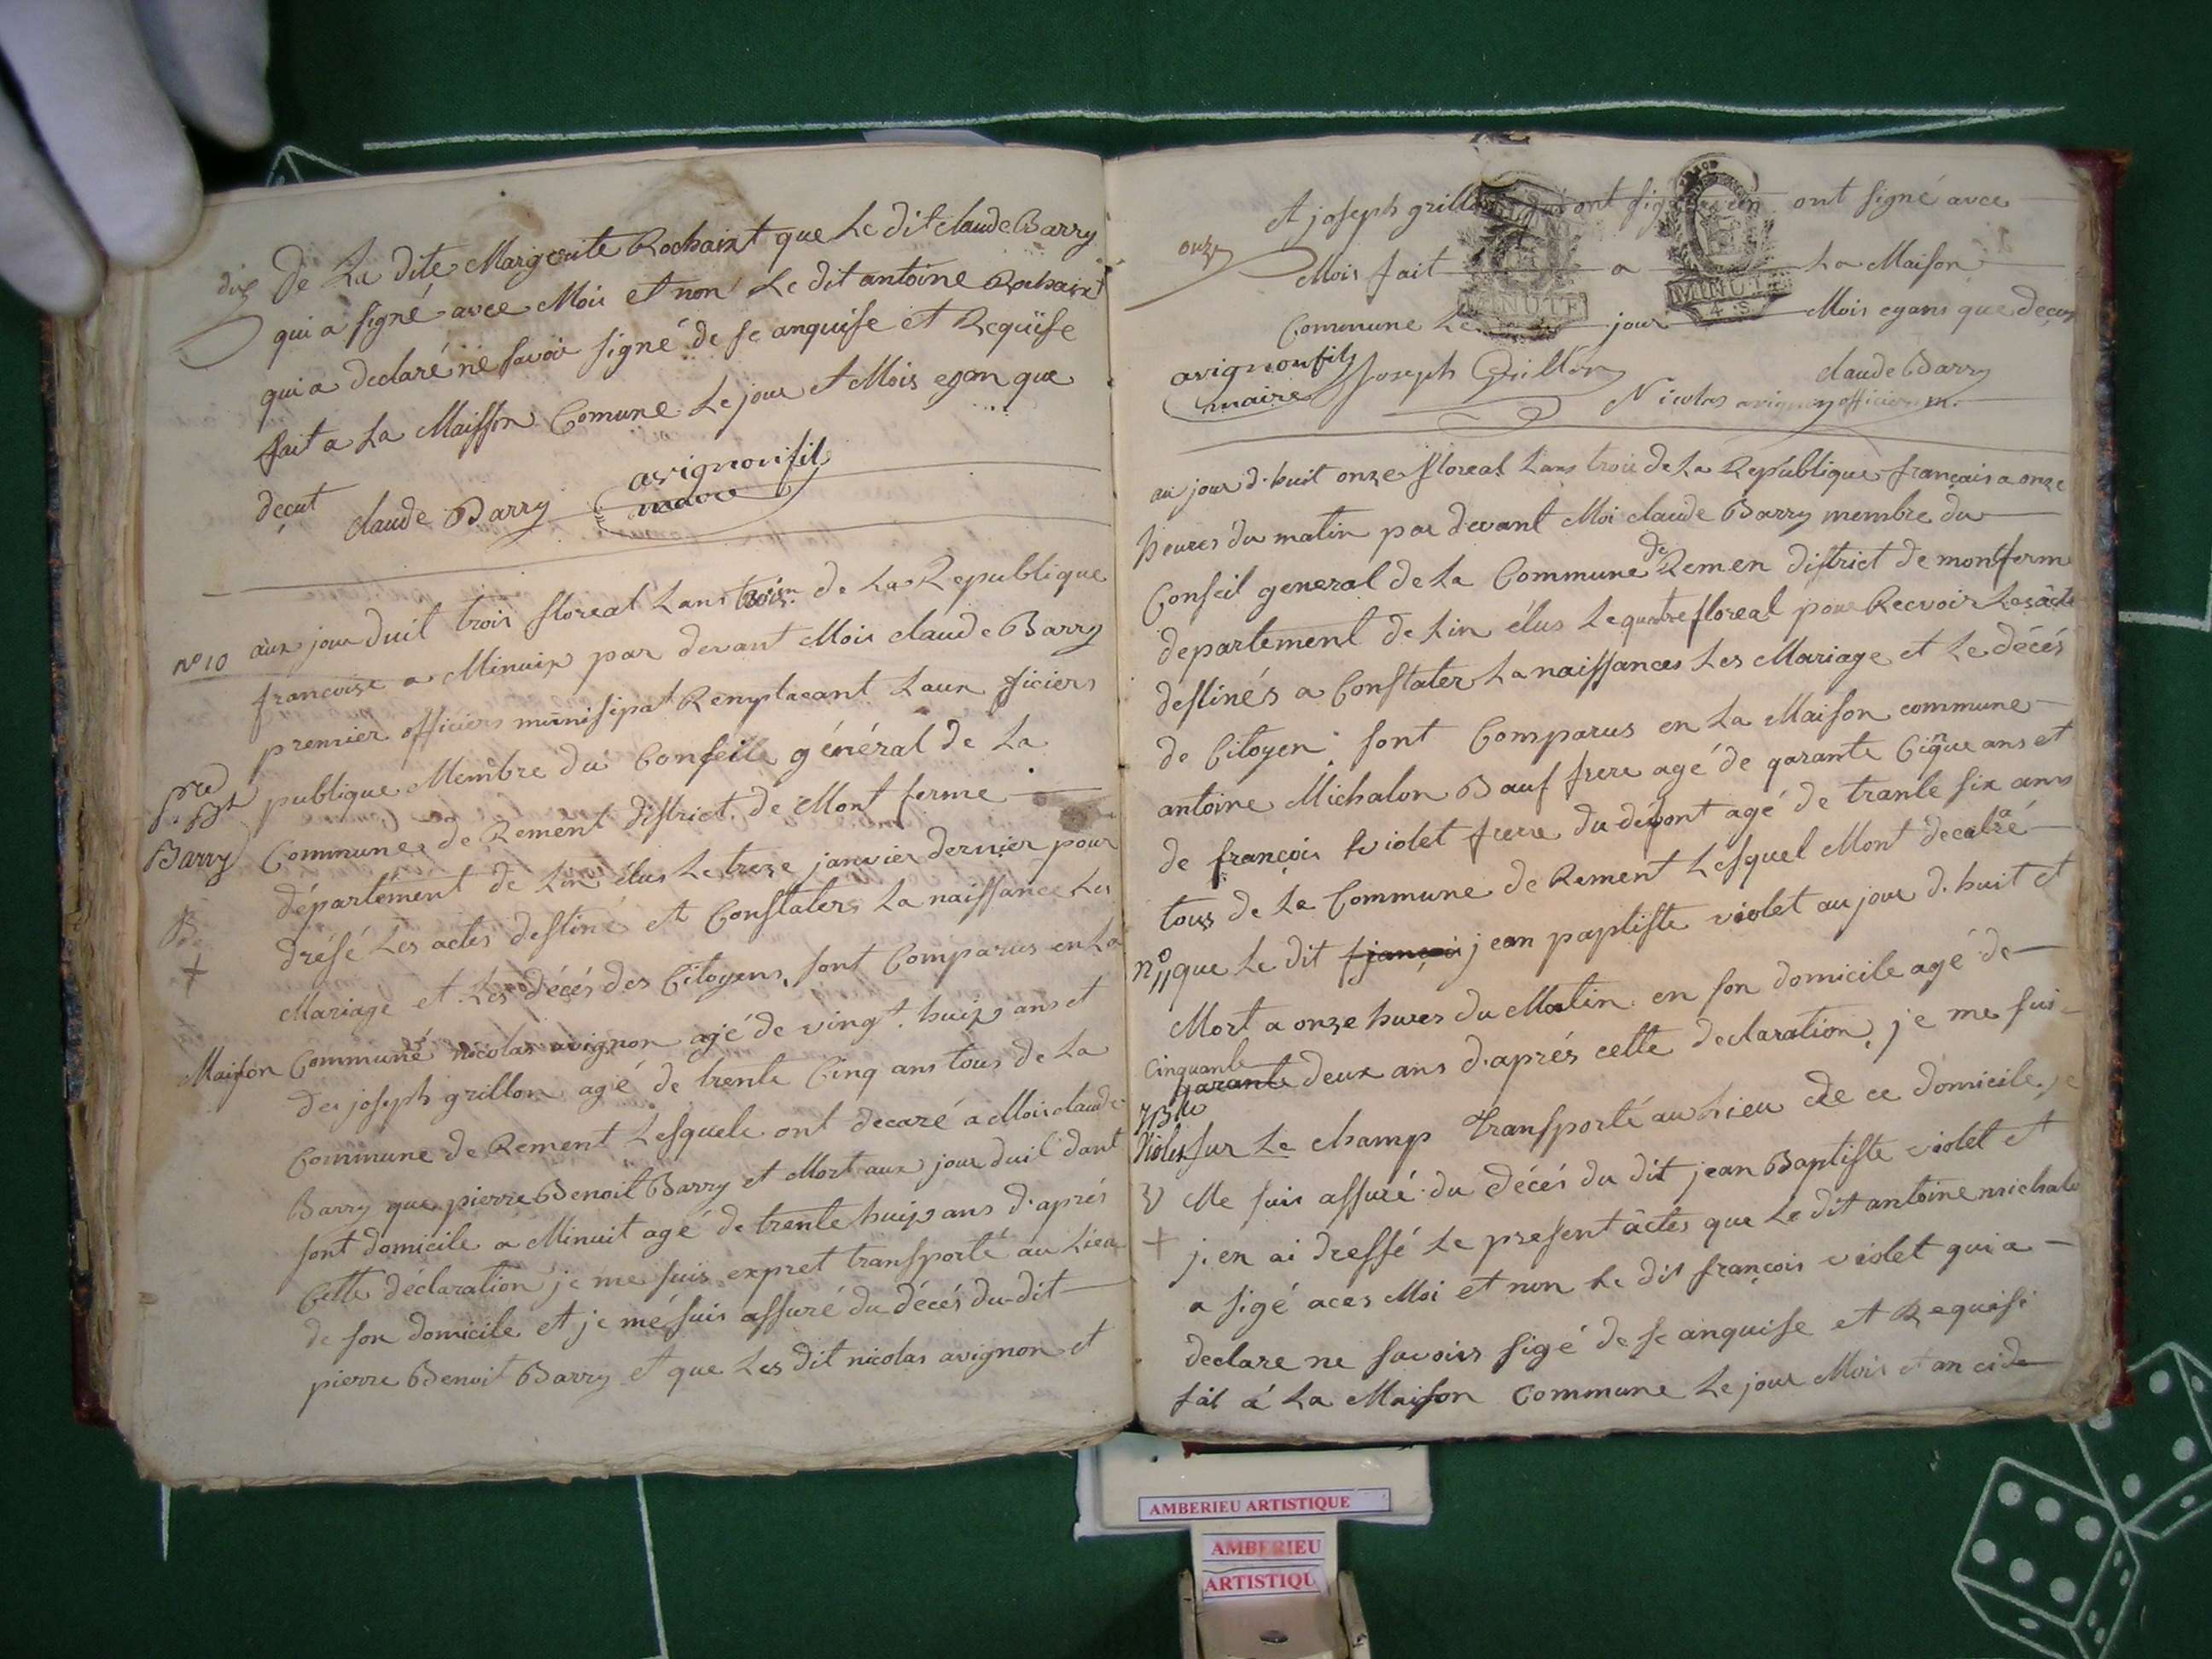 dix de La dite Margerite Rochaixt que Le dit claude Barry
qui a signé avec Moii et non Le dit antoine Rochaixt
qui a declaré ne savoir signé de se anquise et Requise
fait a La Maisson Comune Le jour et Mois egan que
deçut
claude Barry
avignon fils
maire
nº 10 aux jour duil trois floreal Lans trois de La Republique
francoise a Minuix par devant Mois claude Barry
premier officiers munisipat Remplacant Laux ficiers
publique Membre du Conseille général de La
pre Bt
Barry
Commune de Rement district de Mont ferme
département de Lin élus Le treze janvier dernier pour
drésé Les actes destiné et Constaters La naissance Les
B
+
Mariage et Les décés des Citoyens, sont Comparus en La
Maison Communé nicolas avignon agé de vingt huix ans et
de joseph grillon agé de trente Cinq ans tous de La
Commune de Rement Lesquele ont decaré a Mois claude
Barry que pierre Benoit Barry et Mort aux jour duil dant
sont domicile a Minuit agé de trente huix ans d'aprés
Cette déclaration je me suis expret transporté au Lieu
de son domicile et je mé suis assuré du décés du dit
pierre Benoit Barry et que Les dit nicolas avignon et
onze
et joseph grillon ont signé avec
Mois fait a La Maison
Commune Le jour Mois egans que deçus
MINUTE
MINUTE
4. S
avignon fils
maire
Joseph Grillon
claude Barry
Nicolas avignon officier m.
au jour d'huit onze floreal Lans trois de La Republique français a onze
heures du matin par devant Moi claude Barry membre du
Conseil general de La Commune de Remen district de montferm
departement de Lin élus Le quatre floreal pour Recvoir Les âcte
destinés a Constater La naissances Les Mariage et Le décés
de Citoyen sont Comparus en La Maison commune
antoine Michalon Bauf frere agé de qarante Cinque ans et
de françois violet frere du défont agé de trante six ans
tous de La Commune de Rement Lesquel Mont decalré
nº 11 que Le dit françois jean paptiste violet au jour d'huit et
Mort a onze hures du Matin en son domicile agé de
Cinquante
qarante deux ans d'aprés cette declaration, je me suis
JBte
Violet sur Le champ Transporté au Lieu de ce domicile, je
V Me suis assuré du décés du dit jean Baptiste violet et
+ j'en ai dressé Le present âctes que Le dit antoine michalo
a sigé aces Moi et non Le dit françois violet qui a
declare ne savoirs sigé de se anquise et Requisi
fait á La Maison Commune Le jour Mois et an ci de
AMBERIEU ARTISTIQUE
AMBERIEU
ARTISTIQU